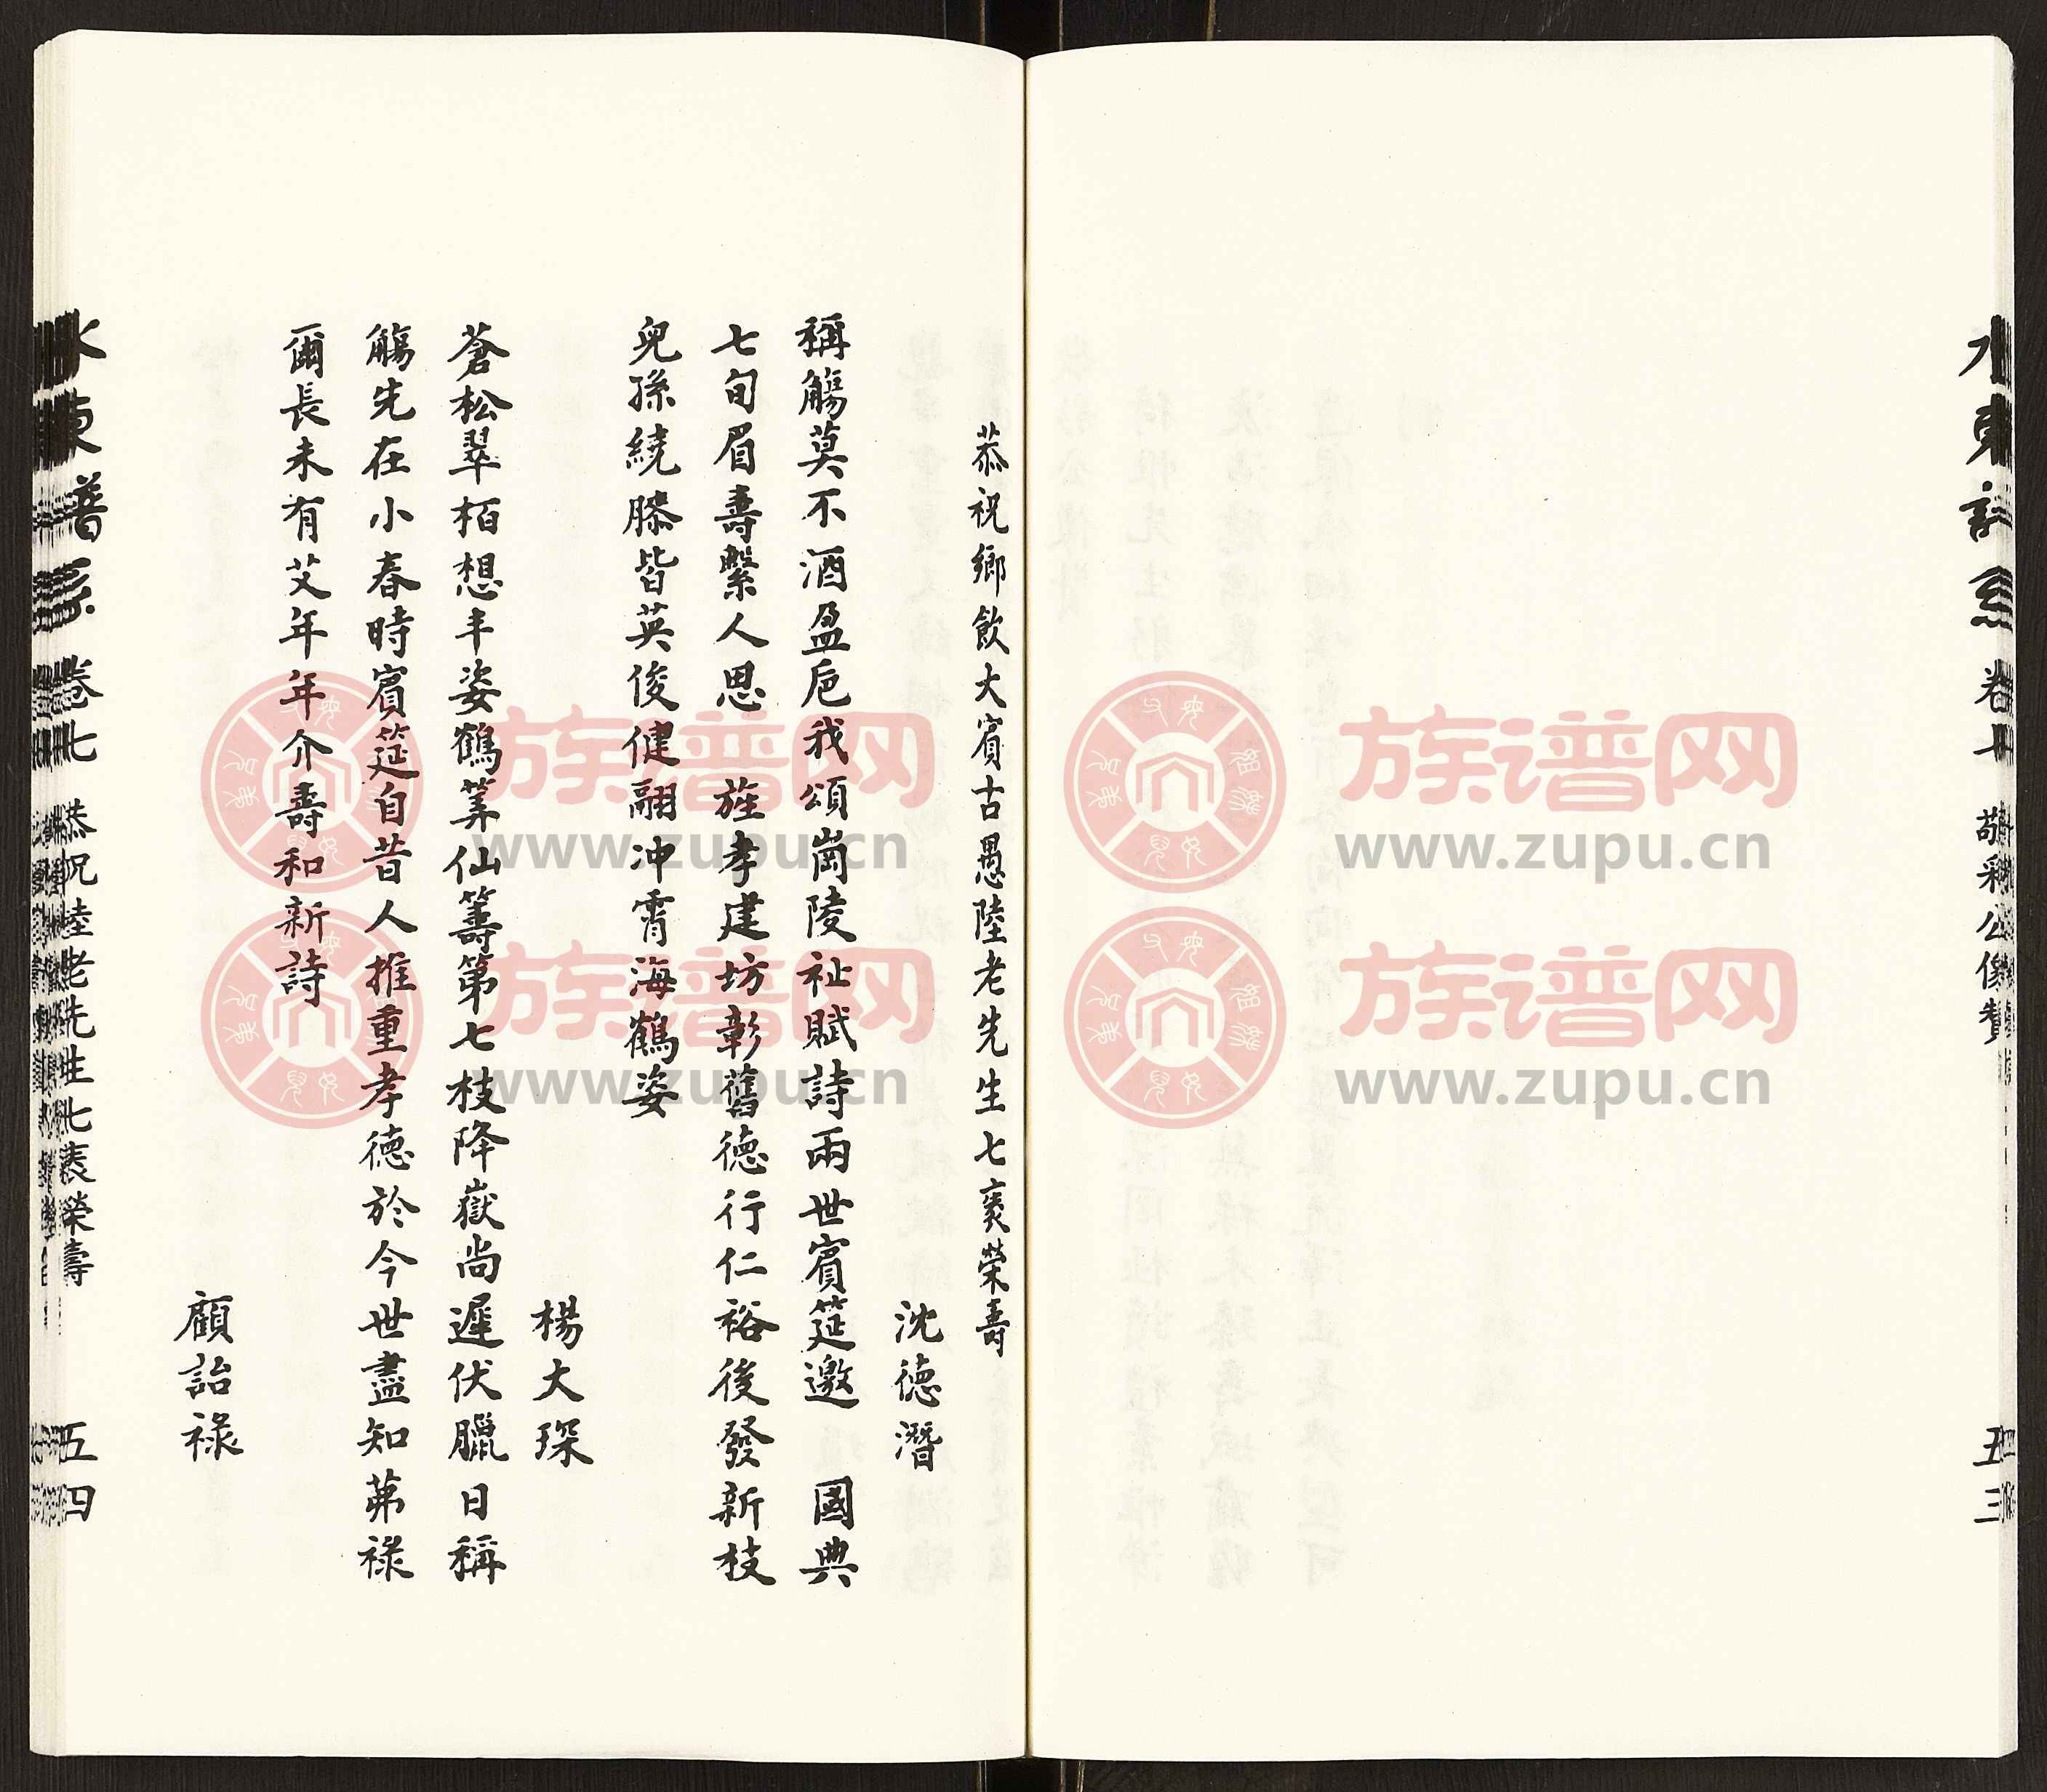 水東譜系 卷七 敬彩公像贊 五三
恭祝鄉飲大賓古愚陸老先生七袠榮壽
沈德潛
稱觴莫不酒盈卮我頌崗陵祉賦詩兩世賓筵邀 國典
七旬眉壽繫人思 旌孝建坊彰舊德行仁裕後發新枝
兒孫繞膝皆英俊健翮冲霄海鶴姿
楊大琛
蒼松翠栢想丰姿鶴筭仙籌第七枝降嶽尚遲伏臘日稱
觴先在小春時賓筵自昔人推重孝德於今世盡知茀祿
爾長未有艾年年介壽和新詩
顧詒祿
水東譜系 卷七 恭祝陸老先生七袠榮壽 五四
族谱网
www.zupu.cn
族谱网
www.zupu.cn
族谱网
www.zupu.cn
族谱网
www.zupu.cn